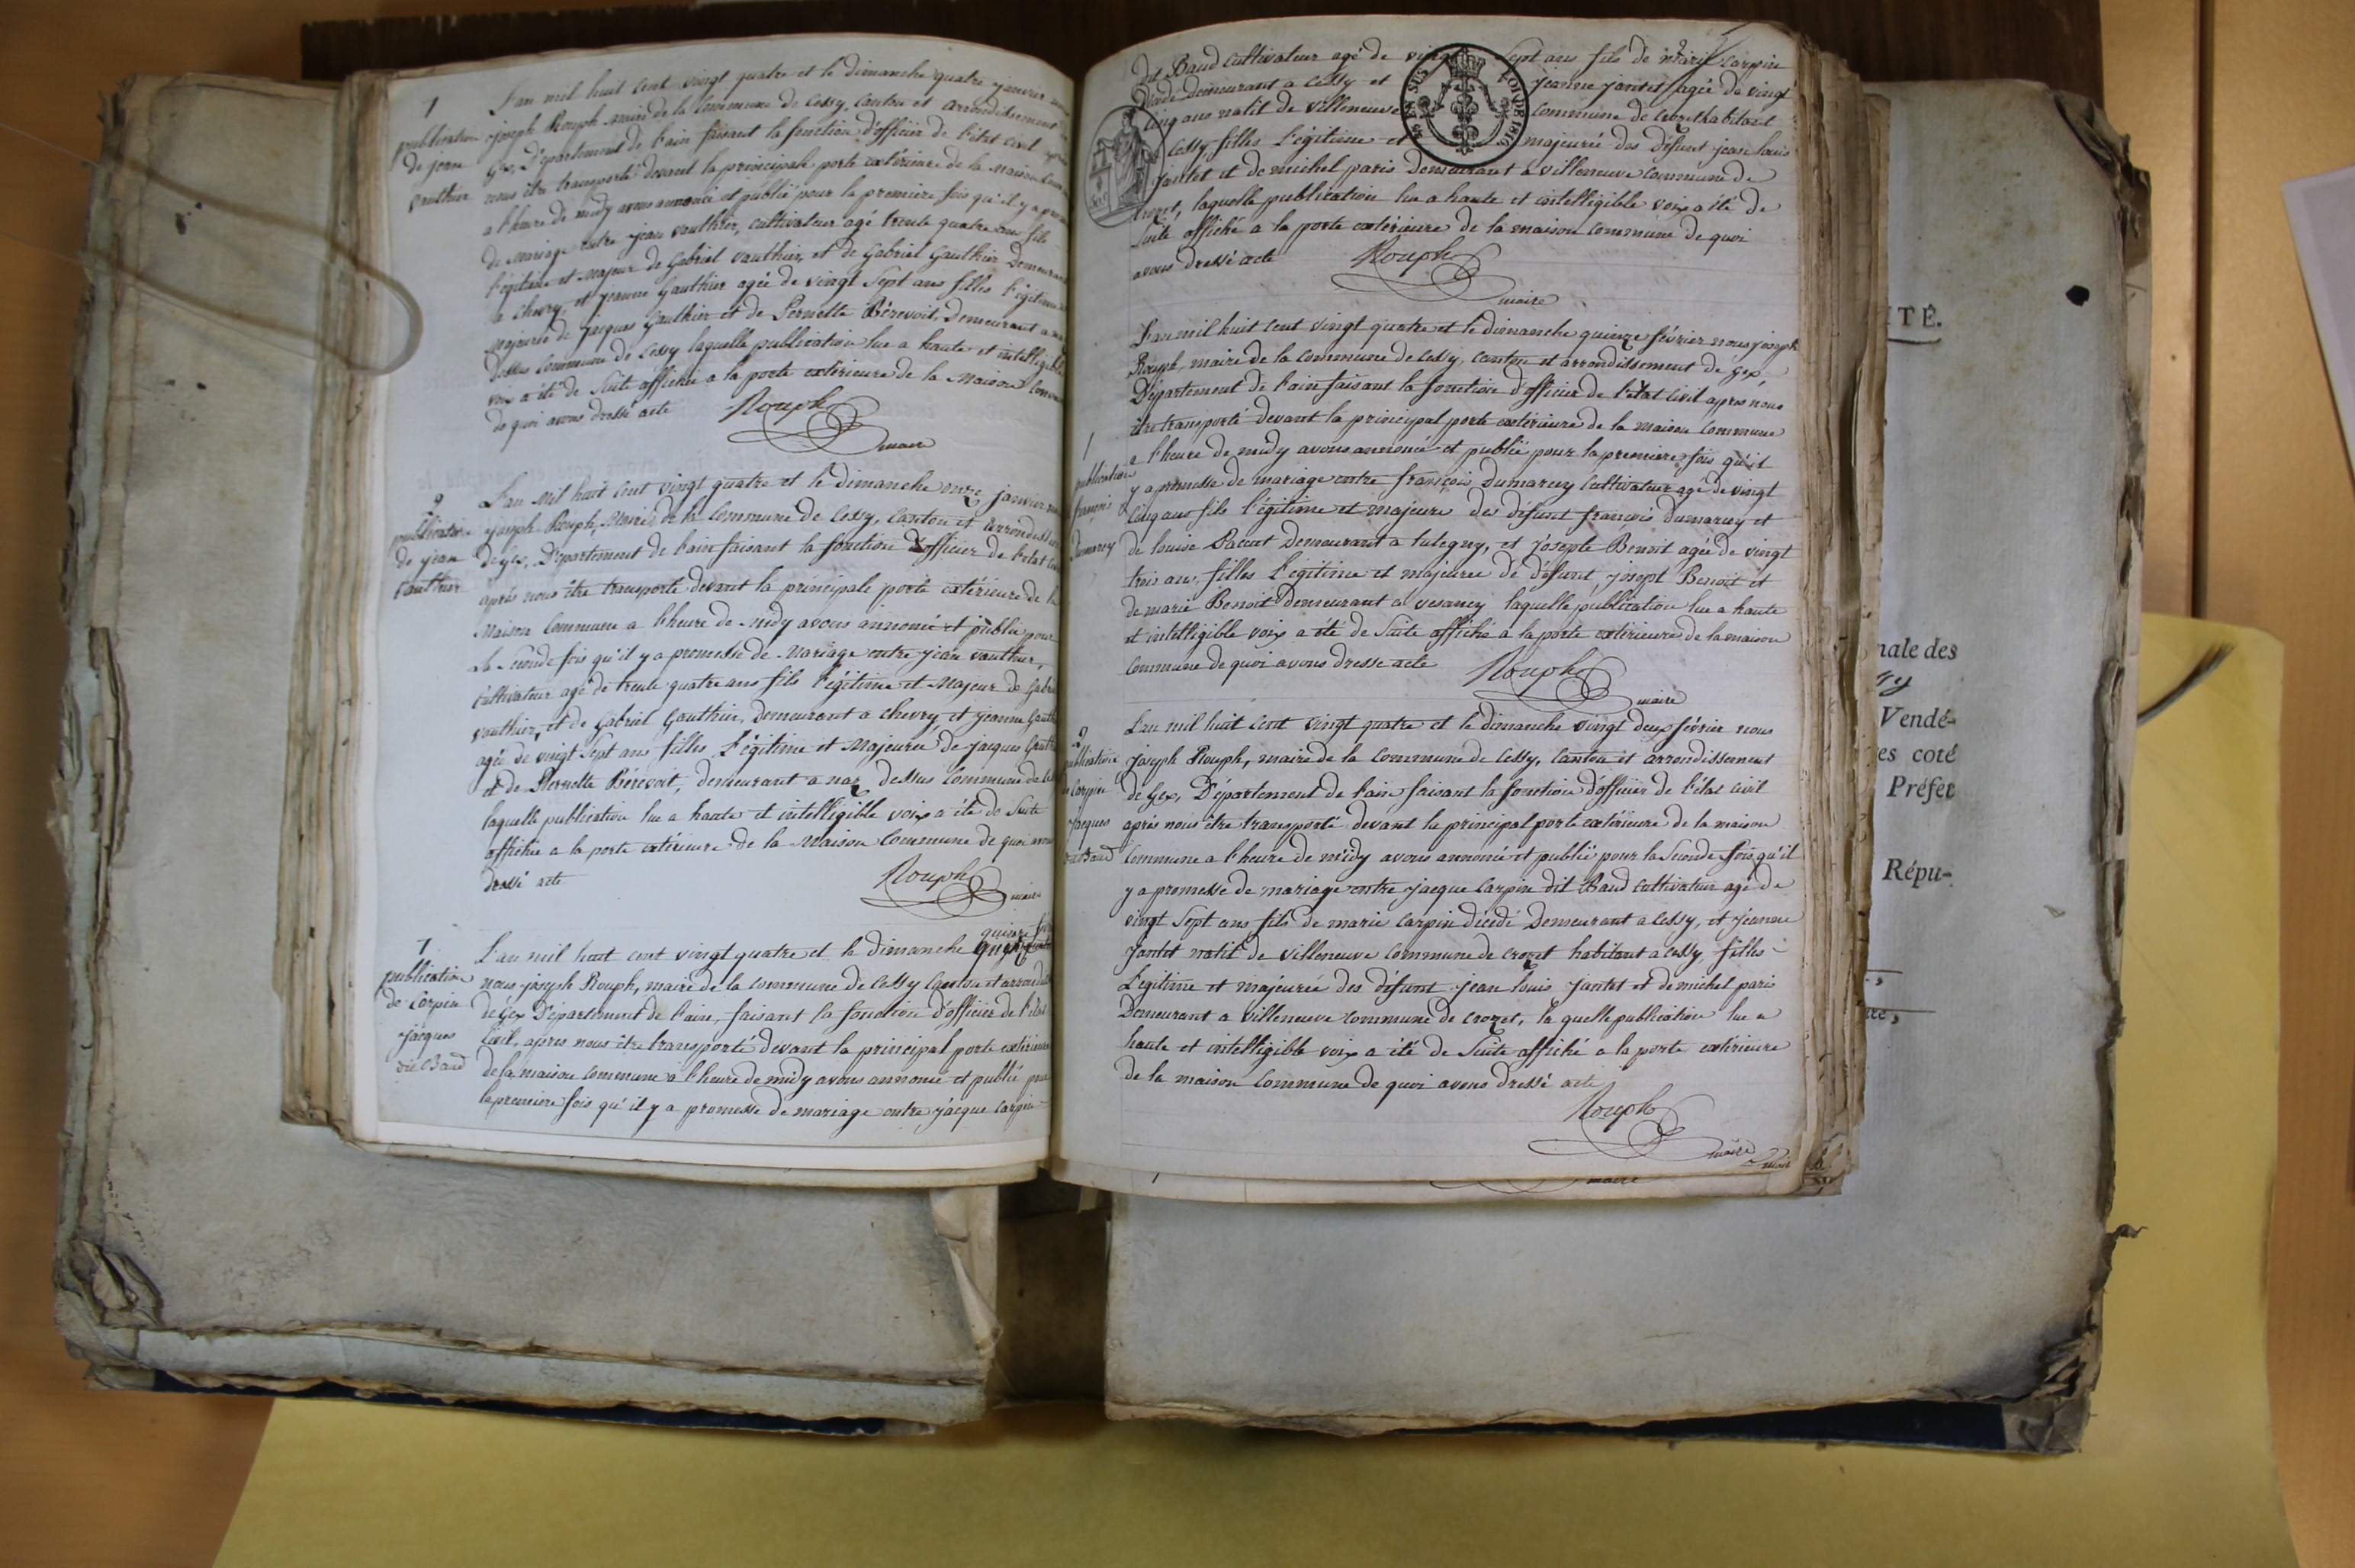 1
publication
de jean
vauthier
L'an mil huit cent vingt quatre et le dimanche quatre janvier
joseph Rouph maire de la Commune de Cessy, Canton et arrondissement
Gex, Département de l'ain faisant la fonction d'officier de l'état civil
nous être transporté devant la principale porte extérieure de la Maison
a l'heure de midy avons annoncé et publié pour la premiere fois qu'il y a
de Mariage entre jean vauthier, cultivateur agé trente quatre ans fils
l'égitime et Majeur de Gabriel vauthier, et de Gabriel Gauthier
a chevry, et jeanne Gauthier agée de vingt Sept ans filles l'égitime
Majeuree de jacques Gauthier et de Pernette Bérevoit, Demeurant a
Dessus Commune de Cessy laquelle publication lue a haute et intelligible
voix a été de Suite affichée a la porte extérieure de la Maison
de quoi avons dressé acte Rouph
maire
2
publication
de jean
Vauthier
L'an Mil huit Cent vingt quatre et le dimanche onze janvier
joseph Rouph, Maire de la Commune de Cessy, Canton et
de Gex, Département de l'ain faisant la fonction d'officier de l'état
après nous être transporté devant la principale porte extérieure de la
Maison Commune a l'heure de Midy avons annoncé et publié pour
la Seconde fois qu'il y a promesse de Mariage entre jean vauthier,
Cultivateur agé de trente quatre ans fils l'égitime et Majeur de
vauthier, et de Gabriel Gauthier, Demeurant a Chevry, et jeanne
agée de vingt Sept ans filles l'égitime et Majeuree de jacques
et de Pernette Bérevoit, demeurant a naz dessus Commune de
laquelle publication lue a haute et intelligible voix a été de Suite
affichée a la porte extérieure de la Maison Commune de quoi avons
dressé acte Rouph
maire
1
publication
de Carpin
jacques
dit Baud
quinze
L'an mil huit cent vingt quatre et le dimanche
nous joseph Rouph, maire de la commune de Cessy Canton et
de Gex Département de l'ain, faisant la fonction d'officier de l'état
Civil, apres nous être transporté devant la principal porte extérieure
de la maison Commune a l'heure de midy avons annoncé et publié pour
la premiere fois qu'il y a promesse de mariage entre jacque Carpin
dit Baud Cultivateur agé de vingt Sept ans fils de marie Carpin
Demeurant a Cessy et jeanne jantet agée de vingt
Cinq ans natif de villeneuve commune de Crozet habitant
Cessy, filles l'égitime et majeurée des défunt jean louis
jantet et de michel paris demeurant a villeneuve commune de
Crozet, laquelle publication lue a haute et intelligible voix a été de
Suite affiché a la porte extérieure de la maison Commune de quoi
avons dressé acte Rouph
maire
EN SUS
LOI DE 1816
1
publication
françois
Dumarey
L'an mil huit cent vingt quatre et le dimanche quinze février nous joseph
Rouph, maire de la Commune de Cessy, canton et arrondissement de Gex
Département de l'ain faisant la fonction d'officier de l'état Civil apres nous
être transporté devant la principal porte extérieure de la maison Commune
a l'heure de midy avons annoncé et publié pour la premiere fois qu'il
y a promesse de mariage entre françois Dumarey Cultivateur agé de vingt
Cinq ans fils l'égitime et majeure des défunt françois Dumarey et
de louise Demeurant a et josepte Benoit agée de vingt
trois ans, filles l'égitime et majeuree de défunt josept Benoit et
de marie Benoit Demeurant a vesancy laquelle publication lue a haute
et intelligible voix a été de Suite affiché a la porte extérieure de la maison
Commune de quoi avons dresse acte Rouph
maire
2
publication
de Carpin
Jacques
dit Baud
L'an mil huit cent vingt quatre et le dimanche vingt deux février nous
joseph Rouph, maire de la Commune de Cessy, Canton et arrondissement
de Gex, Département de l'ain faisant la fonction d'officier de l'état Civil
après nous être transporté devant la principal porte extérieure de la maison
Commune a l'heure de midy avons annoncé et publié pour la Seconde fois qu'il
y a promesse de mariage entre jacque Carpin dit Baud Cultivateur agé de
vingt Sept ans fils de marie Carpin décédé Demeurant a Cessy, et jeanne
jantet natif de villeneuve Commune de Crozet habitant a Cessy, filles
L'egitime et majeurée des défunt jean louis jantet et de michel paris
Demeurant a villeneuve commune de crozet, la quelle publication lue a
haute et intelligible voix a été de Suite affiché a la porte extérieure
de la maison Commune de quoi avons dressé acte
Rouph
maire
maire
ITÉ.
nale des
Vendé-
es coté
Préfet
Répu-